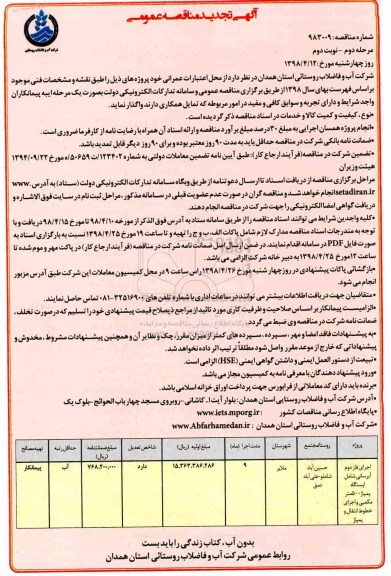 آگهی تجدید مناقصه عمومی
شماره مناقصه: ۹۸۳۰۰۹
مرحله دوم - نوبت دوم
روز چهارشنبه مورخ: ۱۳۹۸/۴/۱۲
شرکت آب و فاضلاب روستائی استان همدان در نظر دارد از محل اعتبارات عمرانی خود پروژه های ذیل را طبق نقشه و مشخصات فنی موجود
براساس فهرست بهای سال ۱۳۹۸ از طریق برگزاری مناقصه عمومی و سامانه تدارکات الکترونیکی دولت بصورت یک مرحله ای به پیمانکاران
واجد شرایط و دارای تجربه و سوابق کافی و مفید در امور مربوطه که تمایل همکاری دارند واگذار نماید.
نوع، کیفیت و کمیت کالا و خدمات در اسناد مناقصه ذکر گردیده است.
*انجام پروژه همسان اجرایی به مبلغ ۳۰ درصد مبلغ برآورد مناقصه و ارائه اسناد آن همراه با رضایت نامه از کارفرما ضروری است.
*ضمانت نامه بانکی شرکت در مناقصه حداقل باید به مدت ۹۰ روز معتبر بوده و برای ۹۰ روز دیگر قابل تمدید باشد.
*تضمین شرکت در مناقصه (فرآیند ارجاع کار): طبق آیین نامه تضمین معاملات دولتی به شماره ۱۲۳۴۰۲/ت۵۰۶۵۹ه مورخ ۱۳۹۴/۰۹/۲۲
هیئت وزیران
مراحل برگزاری مناقصه از دریافت اسناد تا ارسال دعوتنامه از طریق وبگاه سامانه تدارکات الکترونیکی دولت (ستاد) به آدرس www.
setadiran.ir انجام خواهد شد و مناقصه گران در صورت عدم عضویت قبلی در سامانه مذکور، مراحل ثبت نام در سایت فوق الاشاره و
دریافت گواهی امضا الکترونیکی را جهت شرکت در مناقصه انجام دهند.
*کلیه واجدین شرایط می توانند اسناد مناقصه را از طریق سامانه ستاد به آدرس فوق الذکر از مورخه ۹۸/۴/۱۰ تا مورخ ۹۸/۴/۱۵ دریافت و با
توجه به مندرجات اسناد مناقصه مدارک لازم شامل پاکات الف، ب و ج را تهیه و تا ساعت ۱۹ مورخ ۱۳۹۸/۴/۲۵ نسبت به بارگذاری اسناد به
صورت فایل PDF در سامانه اقدام نمایند. در ضمن ارسال اصل ضمانت نامه شرکت در مناقصه (فرآیند ارجاع کار) در پاکت مهر و موم شده تا
ساعت ۱۲ مورخ ۱۳۹۸/۴/۲۵ به دبیرخانه شرکت الزامی می باشد.
*بازگشائی پاکات پیشنهادی در روز چهارشنبه مورخ ۱۳۹۸/۴/۲۶ راس ساعت ۹ در محل کمیسیون معاملات این شرکت طبق آدرس مزبور
انجام می شود.
*متقاضیان جهت دریافت اطلاعات بیشتر می توانند در ساعات اداری با شماره تلفن های ۳۲۵۱۶۹۰۰-۰۸۱ تماس حاصل نمایند.
*الزامیست پیمانکار براساس صلاحیت و ظرفیت کاری مورد تائید از مراجع ذیصلاح قیمت پیشنهادی خود را تسلیم که در صورت تخلف،
ضمانت نامه شرکت در مناقصه وی ضبط می گردد.
*به پیشنهادات فاقد امضا و مهر، سپرده، سپرده های کمتر از میزان مقرر، چک و نظایر آن و همچنین پیشنهادات مشروط، مخدوش و
پیشنهاداتی که خارج از موعد مقرر واصل شود مطلقاً ترتیب اثر داده نخواهد شد.
*تبعیت از دستور العمل ایمنی و داشتن گواهی ایمنی (HSE) الزامی است.
*ورود پیشنهاد دهندگان با معرفی نامه به کمیسیون مجاز می باشد.
*برنده باید دارای کد معاملاتی از فرابورس جهت پرداخت اوراق خزانه اسلامی باشد.
*آدرس شرکت آب و فاضلاب روستایی استان همدان: بلوار آیت ا.. کاشانی - روبروی مسجد چهارباب الحوائج - بلوک یک
*پایگاه اطلاع رسانی مناقصات کشور: www.iets.mporg.ir
*شرکت آب و فاضلاب روستائی استان همدان: www.Abfarhamedan.ir
پروژه روستا/مجتمع شهرستان مدت اجرا (ماه) مبلغ اولیه (ریال) شاخص تعدیل مبلغ ضمانتنامه (ریال) حداقل رتبه تهیه مصالح
اجرای فاز دوم آبرسانی شامل ایستگاه پمپاژ ۵۰۰ متر مکعبی و اجرای خطوط انتقال و پمپاژ حسین آباد شاملو-علی آباد دمق ملایر ۹ ۱۵,۳۶۳,۳۸۶,۲۸۶ دارد ۷۶۸,۲۰۰,۰۰۰ آب پیمانکار
بدون آب، کتاب زندگی را باید بست
روابط عمومی شرکت آب و فاضلاب روستائی استان همدان